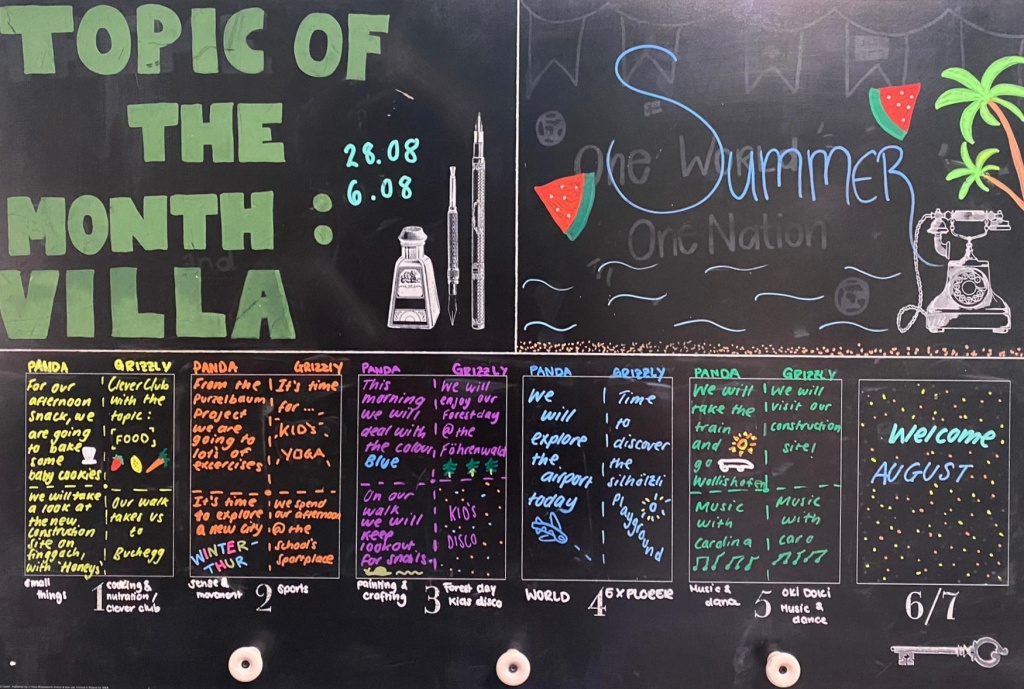 TOPIC OF
THE
MONTH :
VILLA
28.08
6.08
SUMMER
One World
One Nation
and
PANDA
For our
afternoon
snack, we
are going
to bake
some
baby cookies
we will take
a look at
the new
construction
site on
finggach,
with Honeys
small
things
GRIZZLY
Clever Club
with the
topic:
"FOOD"
Our walk
takes us
to
Buchegg
cooking &
nutration/
clever club
1
PANDA
From the
Purzelbaum
Project
we are
going to
lot's of
excercises
It's time
to explore
a new city
WINTER-
THUR
sense &
movement
GRIZZLY
It's time
for ...
KID'S
YOGA
We spend
our afternoon
@ the
school's
Sportplace
Sports
2
PANDA
This
morning
we will
deal with
the colour
Blue
On our
walk
we will
keep
lookout
for snails.
painting &
crafting
GRIZZLY
We will
enjoy our
Forestday
@ the
Föhrenwald
KID'S
DISCO
Forest day
Kids disco
3
PANDA
We
will
explore
the
airport
today
WORLD
GRIZZLY
Time
to
discover
the
silhölzli
Playground
EXPLORER
4
PANDA
We will
take the
train
and
go
Wollishofen
Music
with
Carolina
Music &
dance
GRIZZLY
We will
visit our
construction
site!
Music
with
Caro
Oki Doki
Music &
dance
5
Welcome
AUGUST
6/7